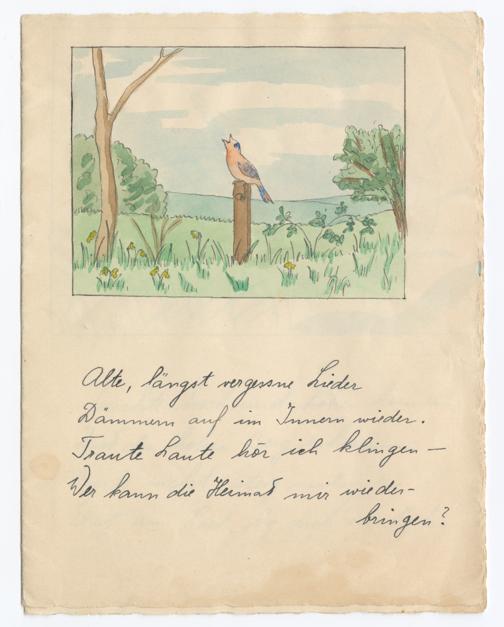 Alte, längst vergessne Lieder
Dämmern auf im Innern wieder.
Traute Laute hör ich klingen –
Wer kann die Heimat mir wieder-
bringen?